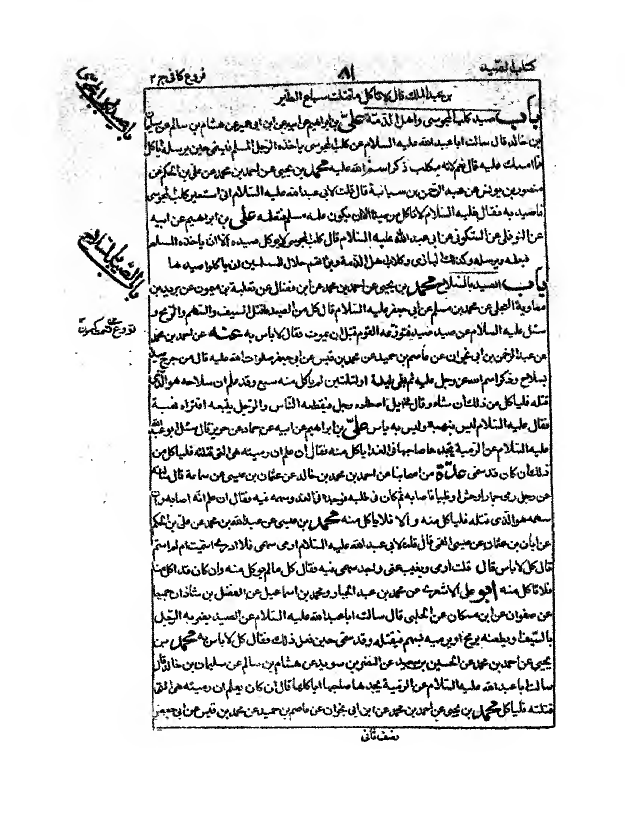 كتاب الصيد
٨١
فروع كافى جز ٢
بن عبد الملك قال لا تاكل ما قتلت سباع الطير
باب صيد كلب المجوسى واهل الذمة على بن ابراهيم عن ابيه عن ابن ابى عمير عن هشام بن سالم عن سليمان
بن خالد قال سالت ابا عبد الله عليه السلام عن كلب المجوسى ياخذه الرجل المسلم فيسمى حين يرسله ايأكل
مما امسك عليه قال نعم لانه مكلب ذكر اسم الله عليه محمد بن يحيى عن احمد بن محمد عن على بن الحكم عن
منصور بن يونس عن عبد الرحمن بن سيابة قال قلت لابى عبد الله عليه السلام انى استعير كلب المجوسى
فاصيد به فقال عليه السلام لا تاكل من صيده الا ان يكون علمه مسلم فتعلمه على بن ابراهيم عن ابيه
عن النوفلى عن السكونى عن ابى عبد الله عليه السلام قال كلب المجوسى لا يوكل صيده الا ان ياخذه المسلم
فيعلمه ويرسله وكذلك البازى وكلاب اهل الذمة وبزاتهم حلال للمسلمين ان ياكلوا صيدها
باب الصيد بالسلاح محمد بن يحيى عن احمد بن محمد عن ابن فضال عن ثعلبة بن ميمون عن بريد بن
معاوية العجلى عن محمد بن مسلم عن ابى جعفر عليه السلام قال كل من الصيد ما قتل السيف والسهم والرمح و
سئل عليه السلام عن صيد صيد فتوزعه القوم قبل ان يموت فقال لا باس به عنه عن احمد بن محمد
عن عبد الرحمن بن ابى نجران عن عاصم بن حميد عن محمد بن قيس عن ابى جعفر صلوات الله عليه قال من جرح صيدا
بسلاح وذكر اسم الله عز وجل عليه ثم بقى ليلة او ليلتين لم ياكل منه سبع وقد علم ان سلاحه هو الذى
قتله فلياكل من ذلك ان شاء وقال فى ايل اصطاده رجل فيقطعه الناس والرجل يتبعه افتراه نهبة
فقال عليه السلام ليس بنهبة وليس به باس على بن ابراهيم عن ابيه عن حماد عن حريز قال سئل ابو عبد الله
عليه السلام عن الرمية يجدها صاحبها فى الغد اياكل منه فقال ان علم ان رميته هى التى قتلته فلياكل من
ذلك ان كان قد سمى عدة من اصحابنا عن احمد بن محمد بن خالد عن عثمان بن عيسى عن سماعة قال سالته
عن رجل رمى حمار وحش او ظبيا فاصابه ثم كان فى طلبه فوجده فى الغد وسهمه فيه فقال ان علم انه اصابه وان
سهمه هو الذى قتله فلياكل منه والا فلا ياكل منه محمد بن يحيى عن عبد الله بن محمد عن على بن الحكم
عن ابان بن عثمان عن عيسى القمى قال قلت لابى عبد الله عليه السلام ارمى سهمى فلا ادرى اسميت ام لم اسم
قال كل لا باس قال قلت ارمى ويغيب عنى واجد سهمى فيه فقال كل ما لم يوكل منه وان كان قد اكل منه
فلا تاكل منه ابو على الاشعرى عن محمد بن عبد الجبار ومحمد بن اسماعيل عن الفضل بن شاذان جميعا
عن صفوان عن ابن مسكان عن الحلبى قال سالت ابا عبد الله عليه السلام عن الصيد يضربه الرجل
بالسيف او يطعنه برمح او يرميه بسهم فيقتله وقد سمى حين فعل ذلك فقال كل لا باس به محمد بن
يحيى عن احمد بن محمد عن الحسين بن سعيد عن النضر بن سويد عن هشام بن سالم عن سليمان بن خالد قال
سالت ابا عبد الله عليه السلام عن الرمية يجدها صاحبها اياكلها قال ان كان يعلم ان رميته هى التى
قتلته فلياكل محمد بن يحيى عن احمد بن محمد عن ابن ابى نجران عن عاصم بن حميد عن محمد بن قيس عن ابى جعفر
نصف ثانى
باب صيد كلب المجوسى
باب الصيد بالسلاح